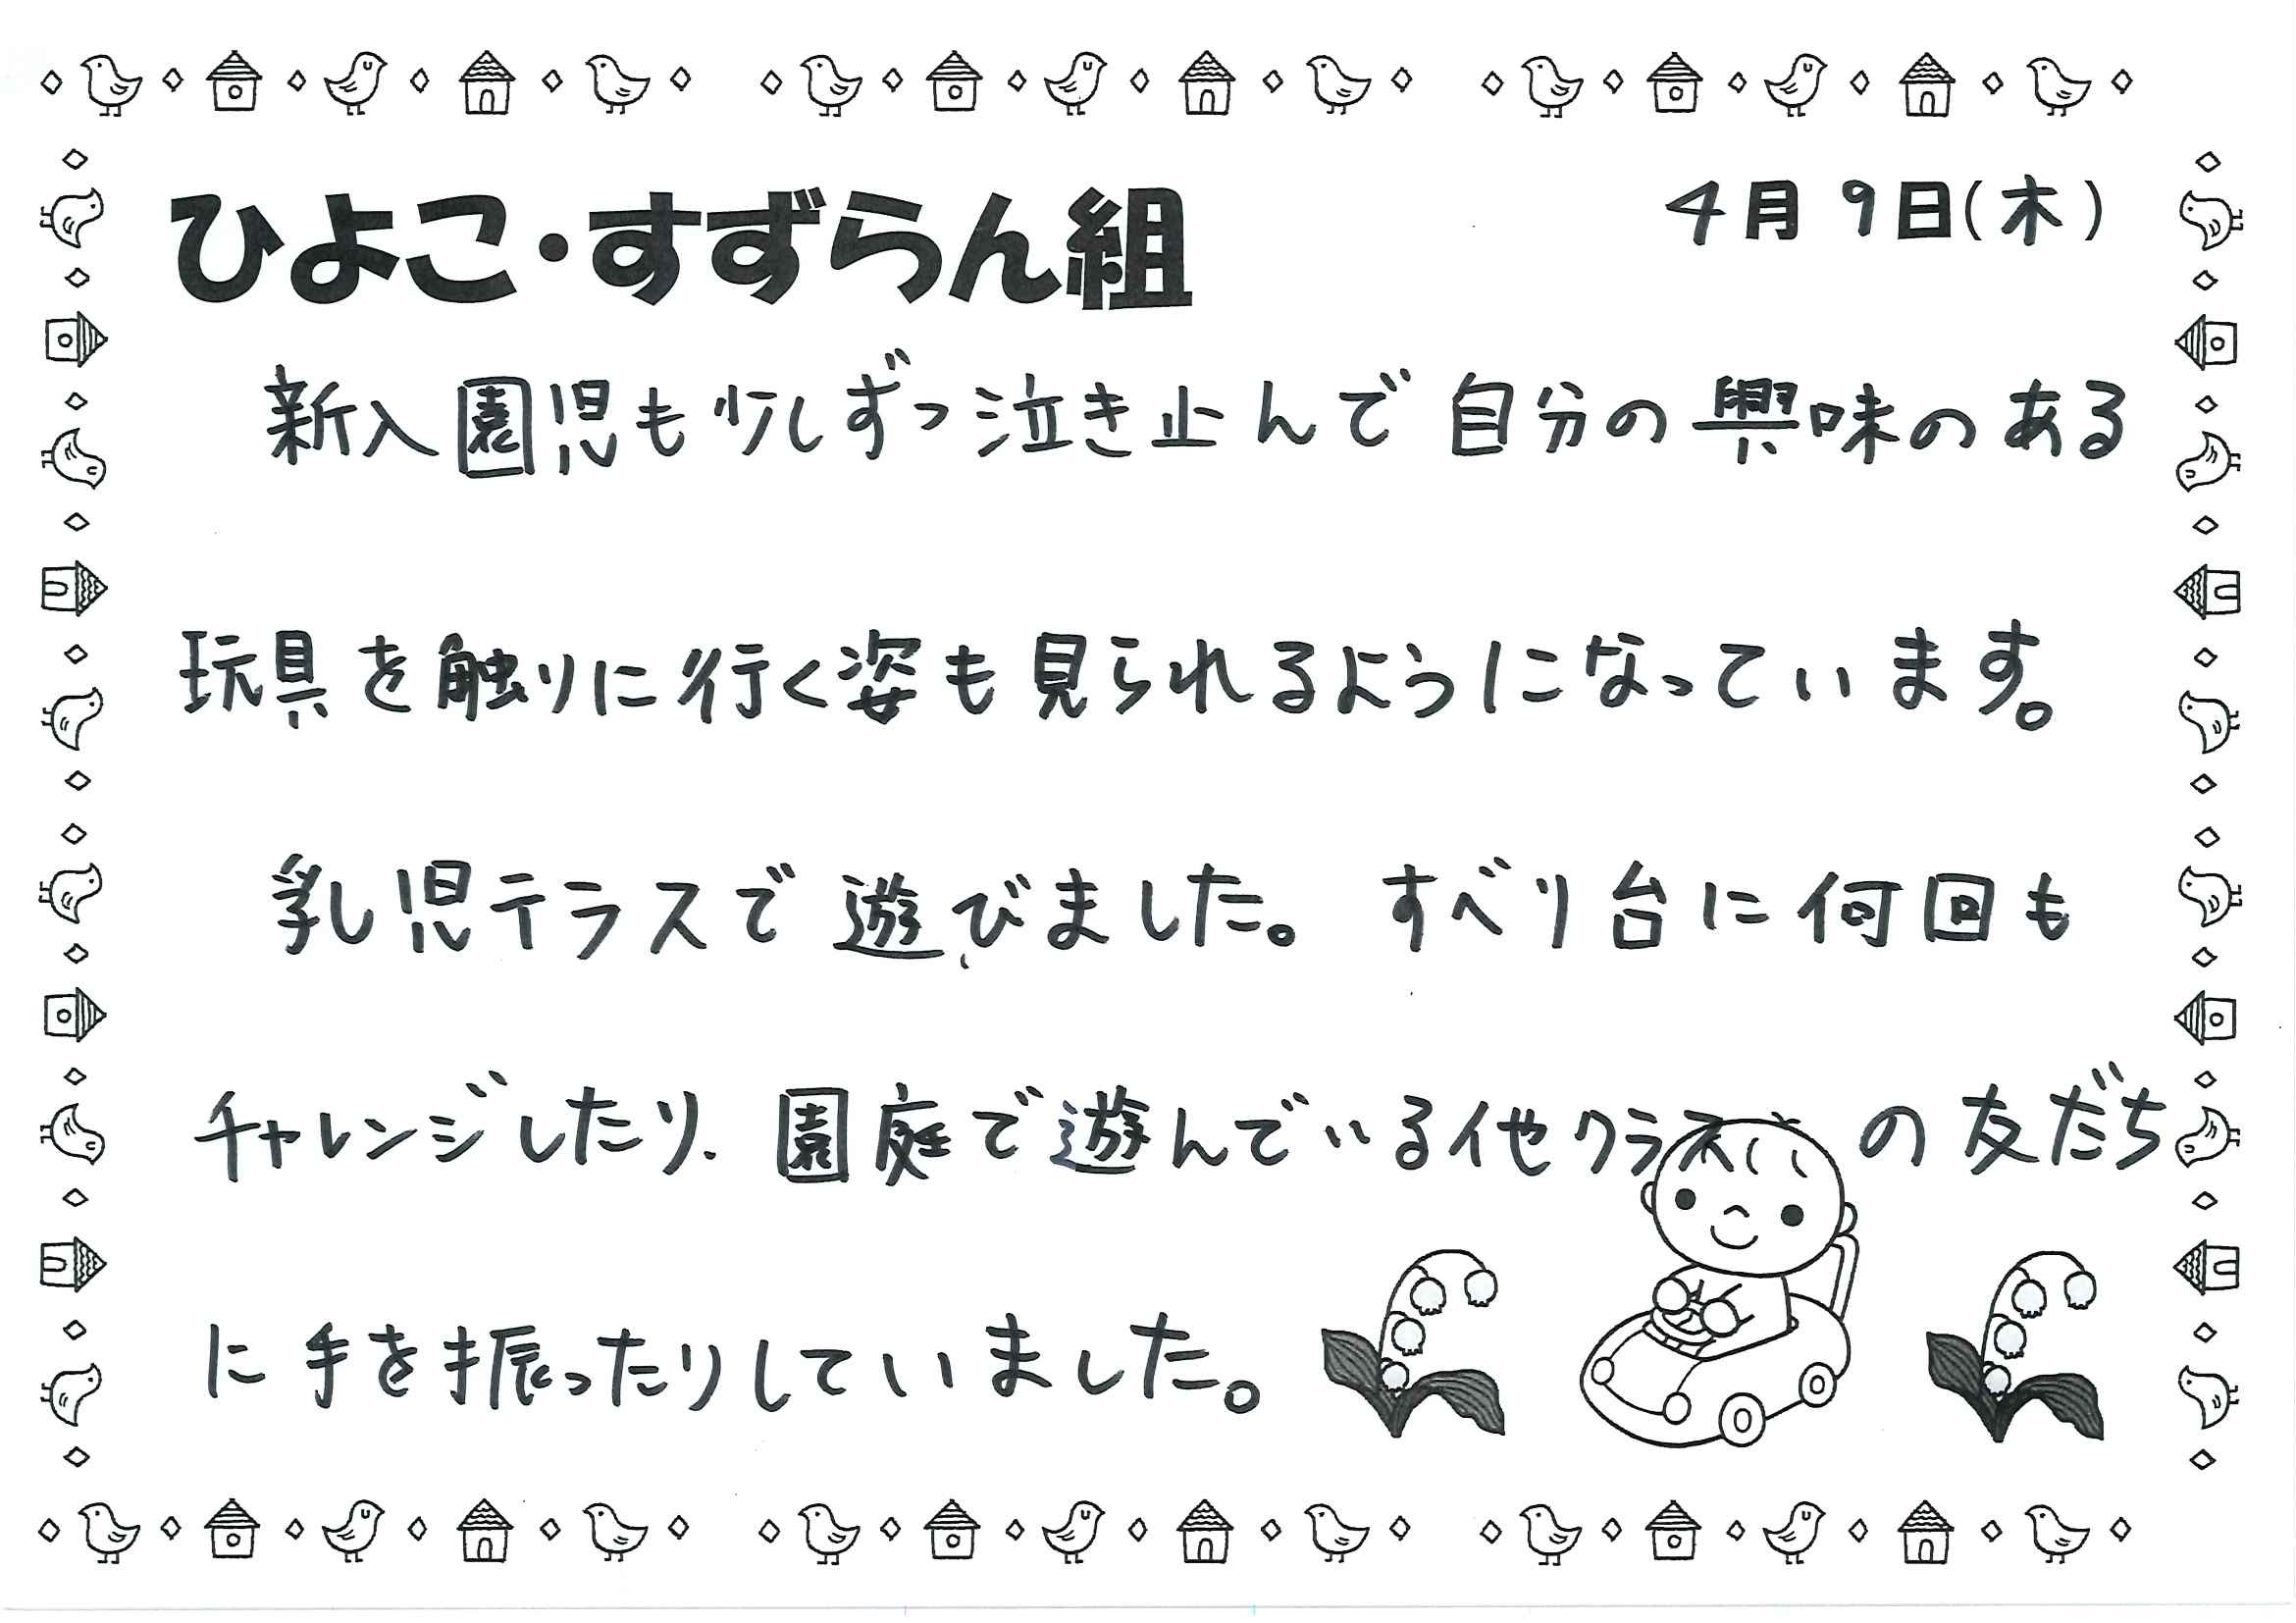 ひよこ・すずらん組
4月9日(木)
新入園児も少しずつ泣き止んで自分の興味のある
玩具を触りに行く姿も見られるようになっています。
乳児テラスで遊びました。すべり台に何回も
チャレンジしたり、園庭で遊んでいる他クラスの友だち
に手を振ったりしていました。